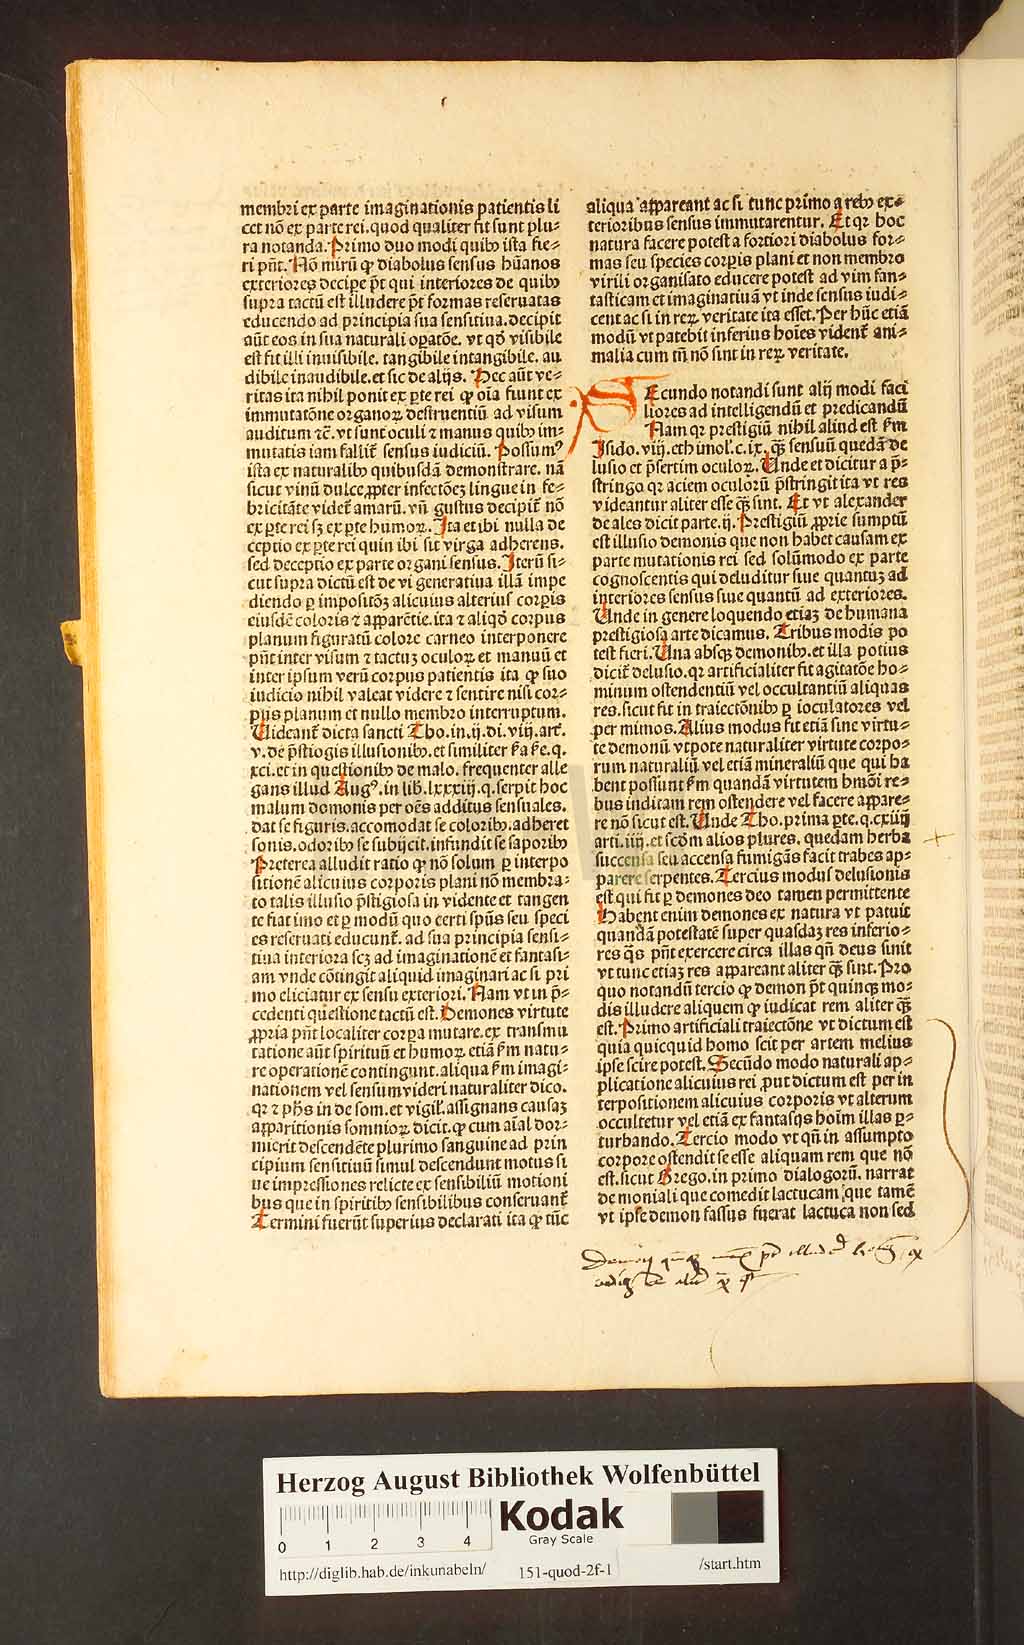 membri ex parte imaginationis patientis li
cet nō ex parte rei. quod qualiter fit sunt plu-
ra notanda. Primo duo modi quibꝰ ista fie-
ri pn̄t. Nō mirū ꝙ diabolus sensus hūanos
exteriores decipe p̄t qui interiores de quibꝰ
supra tactū est illudere p̄t formas reseruatas
educendo ad principia sua sensitiua. decipit
aūt eos in sua naturali oꝑatōe. vt qd̄ visibile
est fit illi inuisibile. tangibile intangibile. au
dibile inaudibile. et sic de alijs. Hec aūt ve-
ritas ita nihil ponit ex ꝑte rei ꝙ oīa fiunt ex
immutatōne organoꝝ destruentiū ad visum
auditum ⁊c̄. vt sunt oculi ⁊ manus quibꝰ im-
mutatis iam fallit̄ sensus iudiciū. Possumꝰ
ista ex naturalibꝰ quibusdā demonstrare. nā
sicut vinū dulce ꝓpter infectōeꝫ lingue in fe-
bricitāte videt̄ amarū. vn̄ gustus decipit̄ nō
ex ꝑte rei sꝫ ex ꝑte humoꝝ. Ita et ibi nulla de
ceptio ex ꝑte rei quin ibi sit virga adherens.
sed deceptio ex parte organi sensus. Iterū si-
cut supra dictū est de vi generatiua illā impe
diendo ꝑ impositōꝫ alicuius alterius corꝑis
eiusdē coloris ⁊ apparētie. ita ⁊ aliqd̄ corpus
planum figuratū colore carneo interponere
pn̄t inter visum ⁊ tactuꝫ oculoꝝ et manuū et
inter ipsum verū corpus patientis ita ꝙ suo
iudicio nihil valeat videre ⁊ sentire nisi cor-
pus planum et nullo membro interruptum.
Uideant̄ dicta sancti Tho. in .ij. di. viij. art̄.
v. de p̄stiogis illusionibꝰ. et similiter
xci. et in questionibꝰ de malo. frequenter alle
gans illud Augꝰ. in lib. lxxxiij. q. serpit hoc
malum domonis per oēs additus sensuales.
dat se figuris. accomodat se coloribꝰ. adheret
sonis. odoribꝰ se subijcit. infundit se saporibꝰ
Preterea alludit ratio ꝙ nō solum ꝑ interpo
sitionē alicuius corporis plani nō membra-
to talis illusio p̄stigiosa in vidente et tangen
te fiat imo et ꝑ modū quo certi spūs seu speci
es reseruati educunt̄. ad sua principia sensi-
tiua interiora scꝫ ad imaginationē et fantasi-
am vnde cōtingit aliquid imaginari ac si pri
mo eliciatur ex sensu exteriori. Nam vt in p̄-
cedenti questione tactū est. Demones virtute
ꝓpria pn̄t localiter corꝑa mutare. ex transmu
tatione aūt spirituū et humoꝝ etiā fm̄ natu-
re operationē contingunt. aliqua fm̄ imagi-
nationem vel sensum videri naturaliter dico.
qꝛ ⁊ ph̄s in de som. et vigil̄. assignans causaꝫ
apparitionis somnioꝝ dicit. ꝙ cum aīal dor-
mierit descendēte plurimo sanguine ad prin
cipium sensitiuū simul descendunt motus si
ue impressiones relicte ex sensibiliū motioni
bus que in spiritibꝰ sensibilibus conseruant̄
Termini fuerūt superius declarati ita ꝙ tūc
aliqua appareant ac si tunc primo a rebꝰ ex-
terioribus sensus immutarentur. Et qꝛ hoc
natura facere potest a fortiori diabolus for-
mas seu species corꝑis plani et non membro
virili organisato educere potest ad vim fan-
tasticam et imaginatiuā vt inde sensus iudi-
cent ac si in reꝝ veritate ita esset. Per hūc etiā
modū vt patebit inferius hoīes vident̄ ani-
malia cum tn̄ nō sint in reꝝ veritate.
SEcundo notandi sunt alij modi faci
liores ad intelligendū et predicandū
Nam qꝛ prestigiū nihil aliud est fm̄
Isido. viij. ethimol'. c. ix. qꝫ̄ sensuū quedā de
lusio et p̄sertim oculoꝝ. Unde et dicitur a p̄-
stringo qꝛ aciem oculorū p̄stringit ita vt res
videantur aliter esse qꝫ̄ sint. Et vt alexander
de ales dicit parte. ij. Prestigiū ꝓprie sumptū
est illusio demonis que non habet causam ex
parte mutationis rei sed solūmodo ex parte
cognoscentis qui deluditur siue quantuꝫ ad
interiores sensus siue quantū ad exteriores.
Unde in genere loquendo etiaꝫ de humana
prestigiosa arte dicamus. Tribus modis po
test fieri. Una absqꝫ demonibꝰ. et illa potius
dicit̄ delusio. qꝛ artificialiter fit agitatōe ho-
minum ostendentiū vel occultantiū aliquas
res. sicut fit in traiectōnibꝰ ꝑ ioculatores vel
per mimos. Alius modus fit etiā sine virtu-
te demonū vtpote naturaliter virtute corpo-
rum naturaliū vel etiā mineraliū que qui ha
bent possunt fm̄ quandā virtutem hmōi re-
bus inditam rem ostendere vel facere appare-
re nō sicut est. Unde Tho. prima ꝑte. q. cxiiij
arti. iiij. et scd̄m alios plures. quedam herba
succensa seu accensa fumigās facit trabes ap-
parere serpentes. Tercius modus delusionis
est qui fit ꝑ demones deo tamen permittente
Habent enim demones ex natura vt patuit
quandā potestatē super quasdaꝫ res inferio-
res qās pn̄t exercere circa illas qn̄ deus sinit
vt tunc etiaꝫ res appareant aliter qꝫ̄ sint. Pro
quo notandū tercio ꝙ demon p̄t quinqꝫ mo-
dis illudere aliquem ꝙ iudicat rem aliter qꝫ̄
est. Primo artificiali traiectōne vt dictum est
quia quicquid homo scit per artem melius
ipse scire potest. Secūdo modo naturali ap-
plicatione alicuius rei ꝓut dictum est per in
terpositionem alicuius corporis vt alterum
occultetur vel etiā ex fantasijs hoīm illas ꝑ-
turbando. Tercio modo vt qn̄ in assumpto
corpore ostendit se esse aliquam rem que nō
est. sicut Grego. in primo dialogorū. narrat
de moniali que comedit lactucam que tamē
vt ipse demon fassus fuerat lactuca non sed
Herzog August Bibliothek Wolfenbüttel
0 1 2 3 4
Kodak
Gray Scale
http://diglib.hab.de/inkunabeln/ 151-quod-2f-1 /start.htm